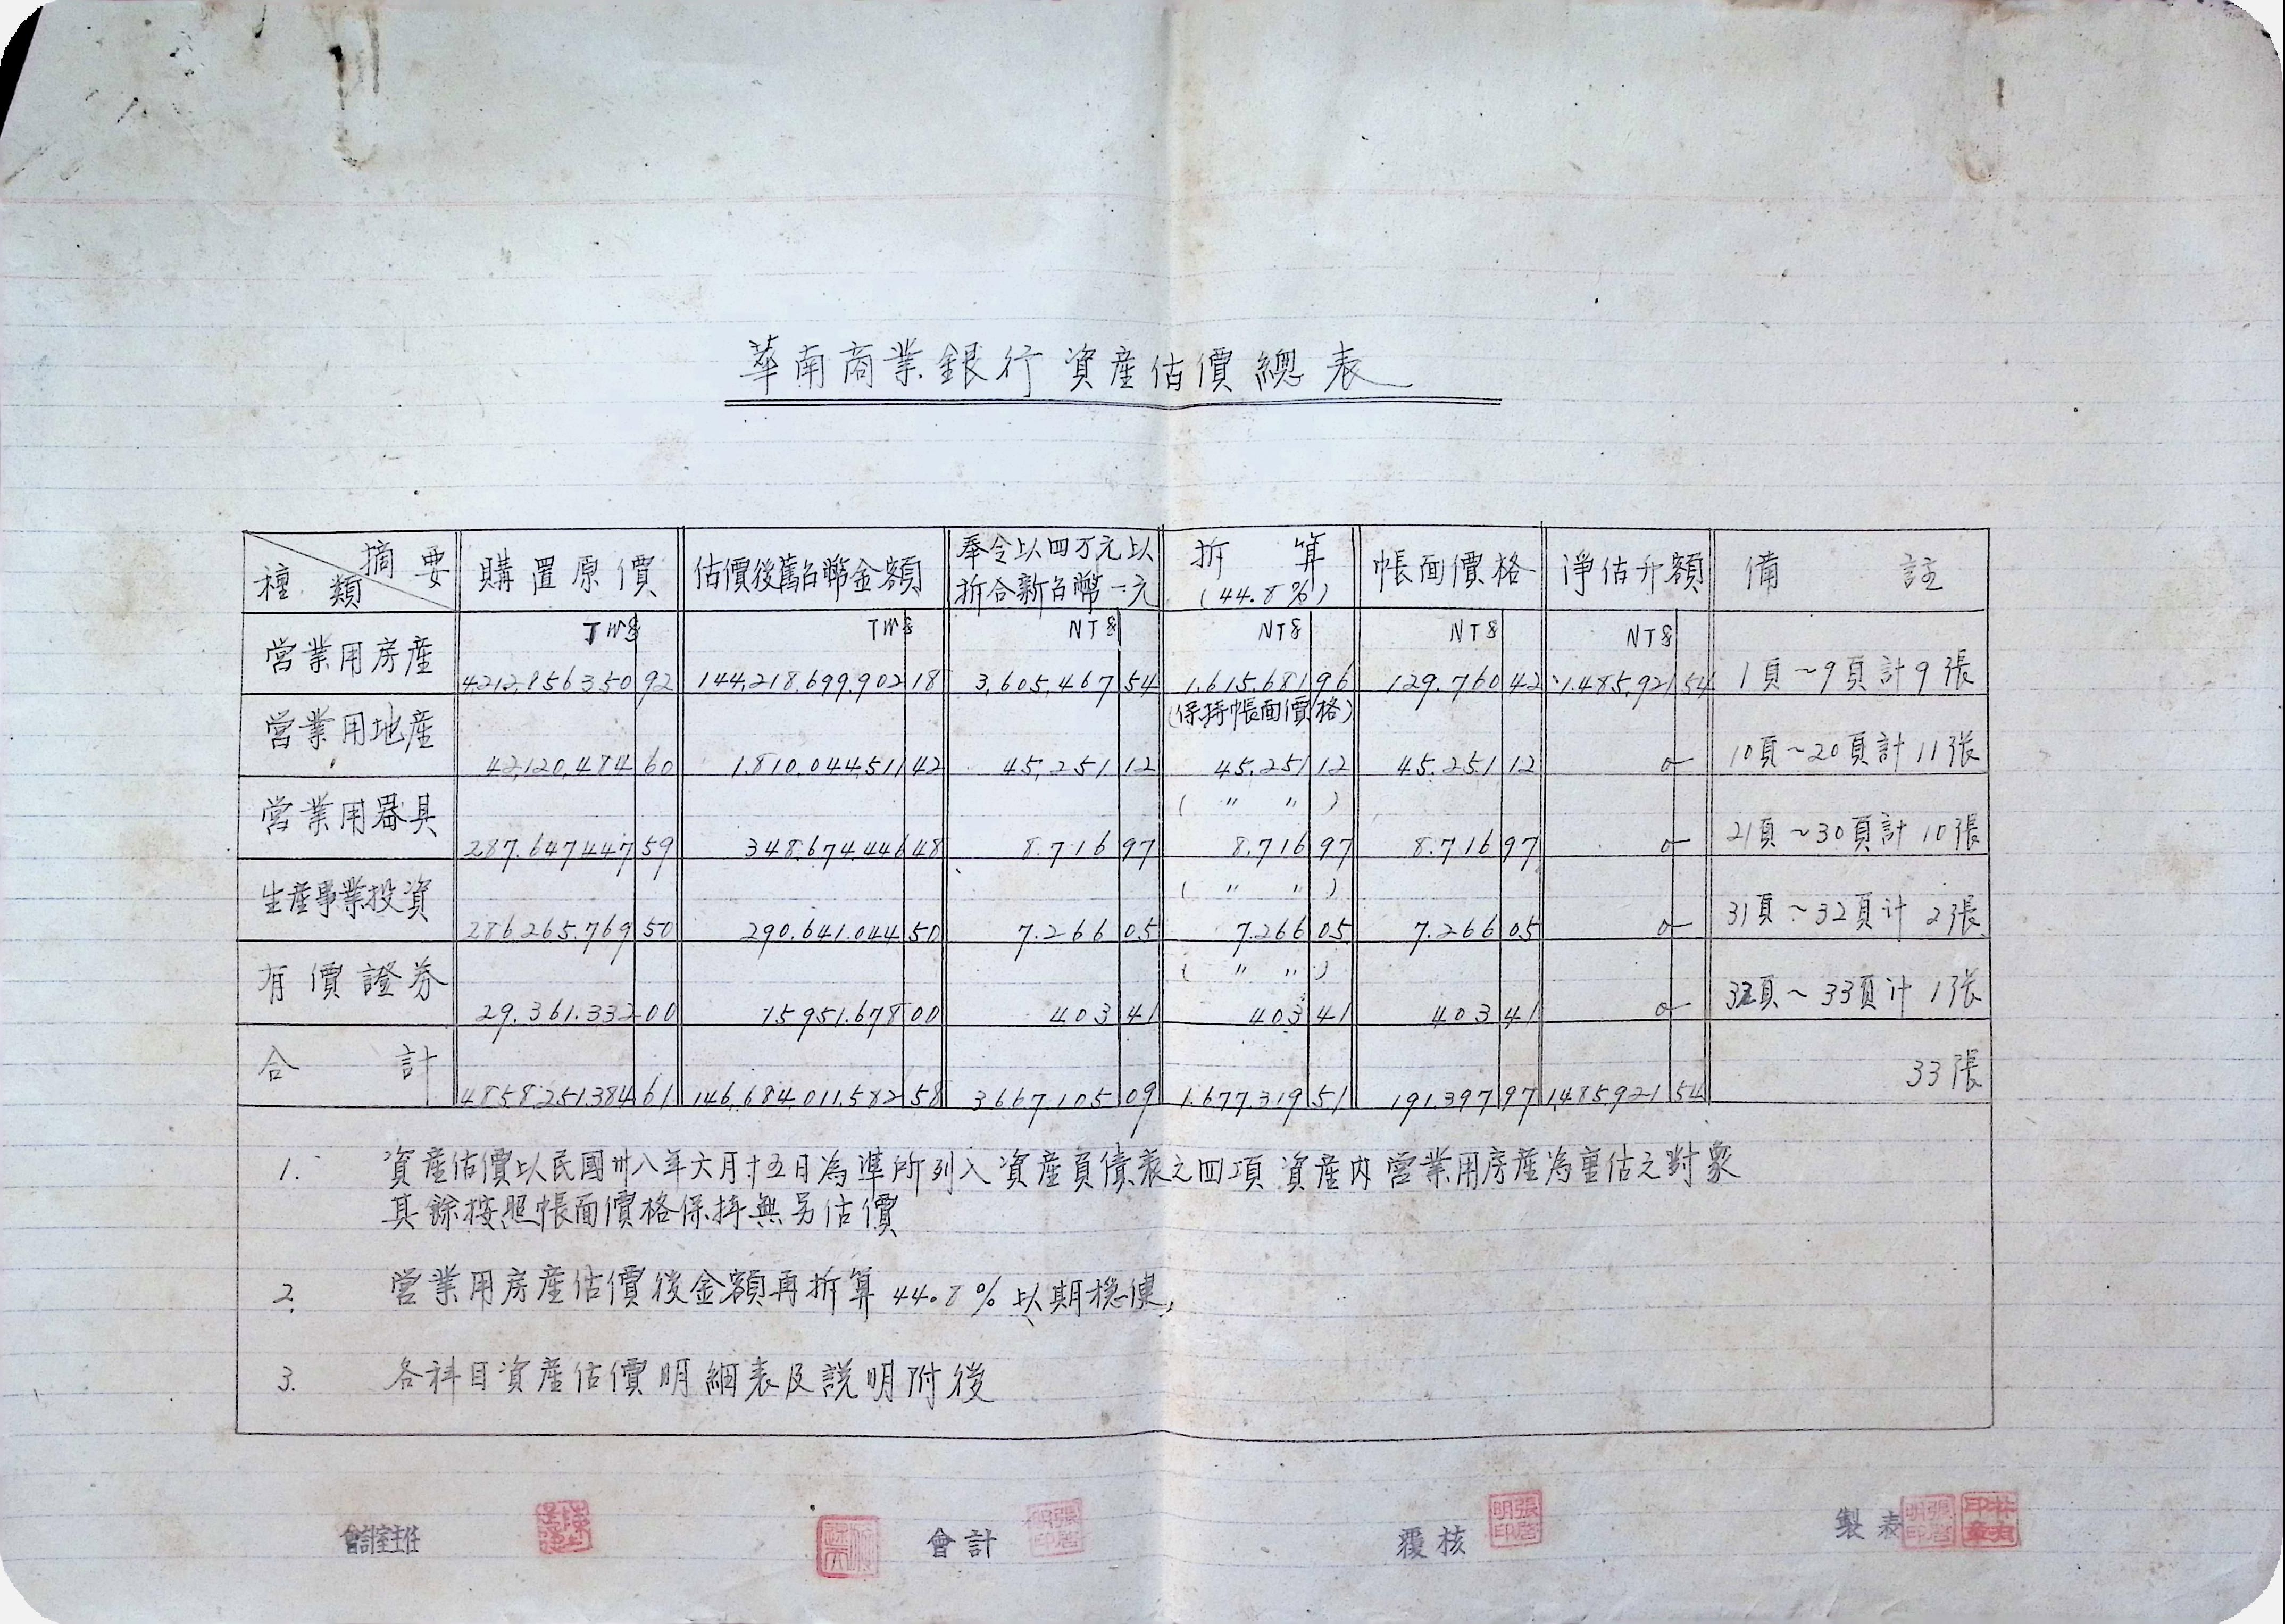 華南商業銀行資産估價總表
摘要 種類 購置原價 估價後舊台幣金額 奉令以四万元以折合新台幣一元 折算(44.8%) 帳面價格 淨估升額 備註
TW$ TW$ NT$ NT$ NT$ NT$
営業用房産 4,212,856,350 92 144,218,699,902 18 3,605,467 54 1,615,681 96 129,760 42 1,485,921 54 1頁~9頁計9張
(保持帳面價格)
営業用地産 42,120,484 60 1,810,044,511 42 45,251 12 45,251 12 45,251 12 0 10頁~20頁計11張
( 〃 〃 )
営業用器具 287,647,447 59 348,674,446 48 8,716 97 8,716 97 8,716 97 0 21頁~30頁計10張
( 〃 〃 )
生産事業投資 286,265,769 50 290,641,044 50 7,266 05 7,266 05 7,266 05 0 31頁~32頁计2張
( 〃 〃 )
有價證券 29,361,332 00 15,951,678 00 403 41 403 41 403 41 0 32頁~33頁计1張
合計 4,858,251,384 61 146,684,011,582 58 3,667,105 09 1,677,319 51 191,397 97 1,485,921 54 33張
1. 資産估價以民國卅八年六月十五日為準所列入資産負債表之四項資産内営業用房産為重估之對象
其餘按照帳面價格保持無另估價
2. 営業用房産估價後金額再折算44.8%以期穏健,
3. 各科目資産估價明細表及説明附後
會計室主任 會計 覆核 製表